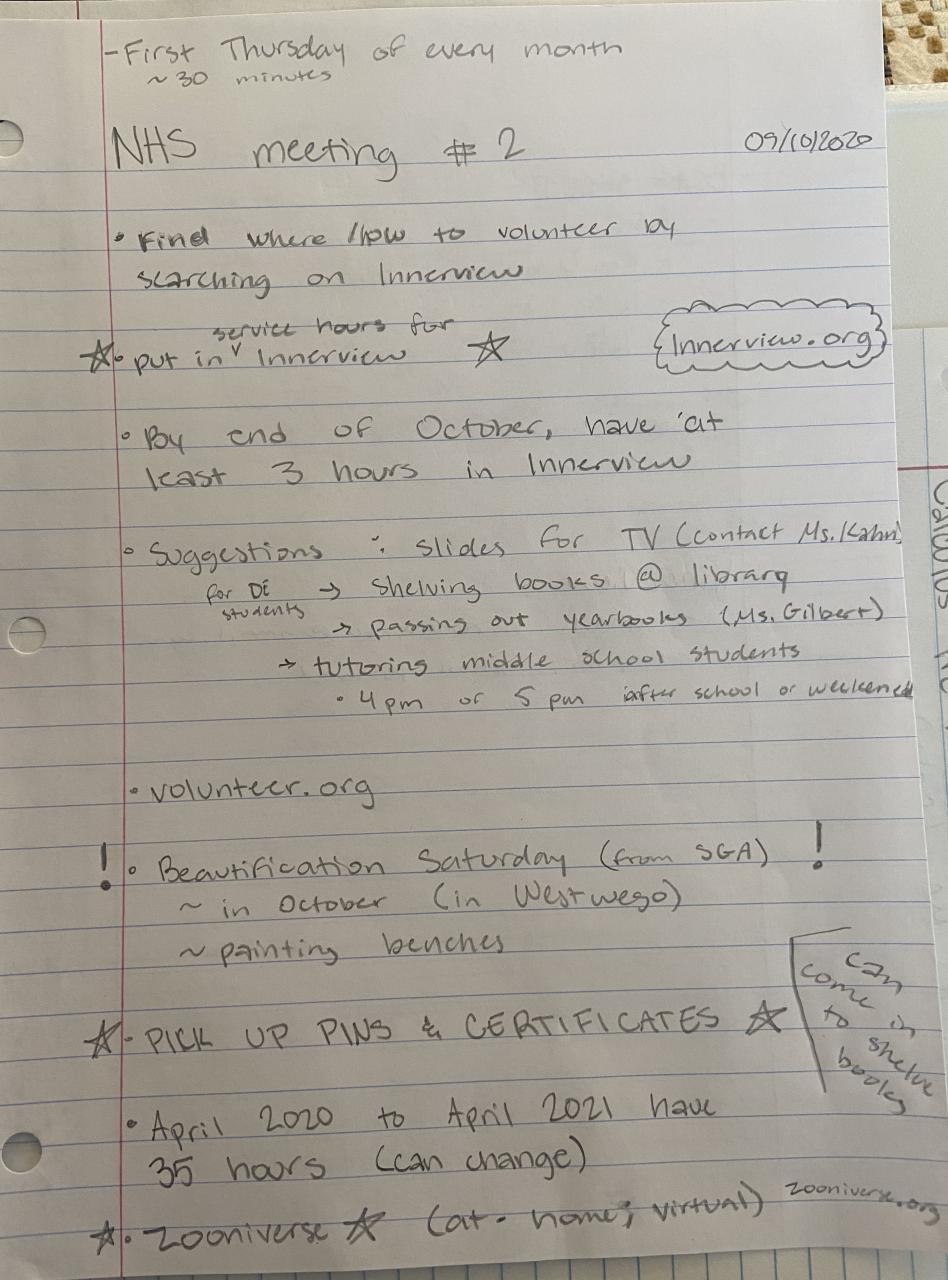 - First Thursday of every month
~ 30 minutes
NHS meeting # 2 09/10/2020
• Find where /how to volunteer by
searching on Innerview
service hours for
☆• put in ˅ Innerview ☆
Innerview.org
• By end of October, have at
least 3 hours in Innerview
• Suggestions : slides for TV (contact Ms. Kahn)
for DE → shelving books @ library
students
→ passing out yearbooks (Ms. Gilbert)
→ tutoring middle school students
• 4 pm or 5 pm after school or weekend
• volunteer.org
! • Beautification Saturday (from SGA) !
~ in October (in Westwego)
~ painting benches
can
come in
to shelve
books
☆• PICK UP PINS & CERTIFICATES ☆
• April 2020 to April 2021 have
35 hours (can change)
☆• Zooniverse ☆ (at - home; virtual) zooniverse.org